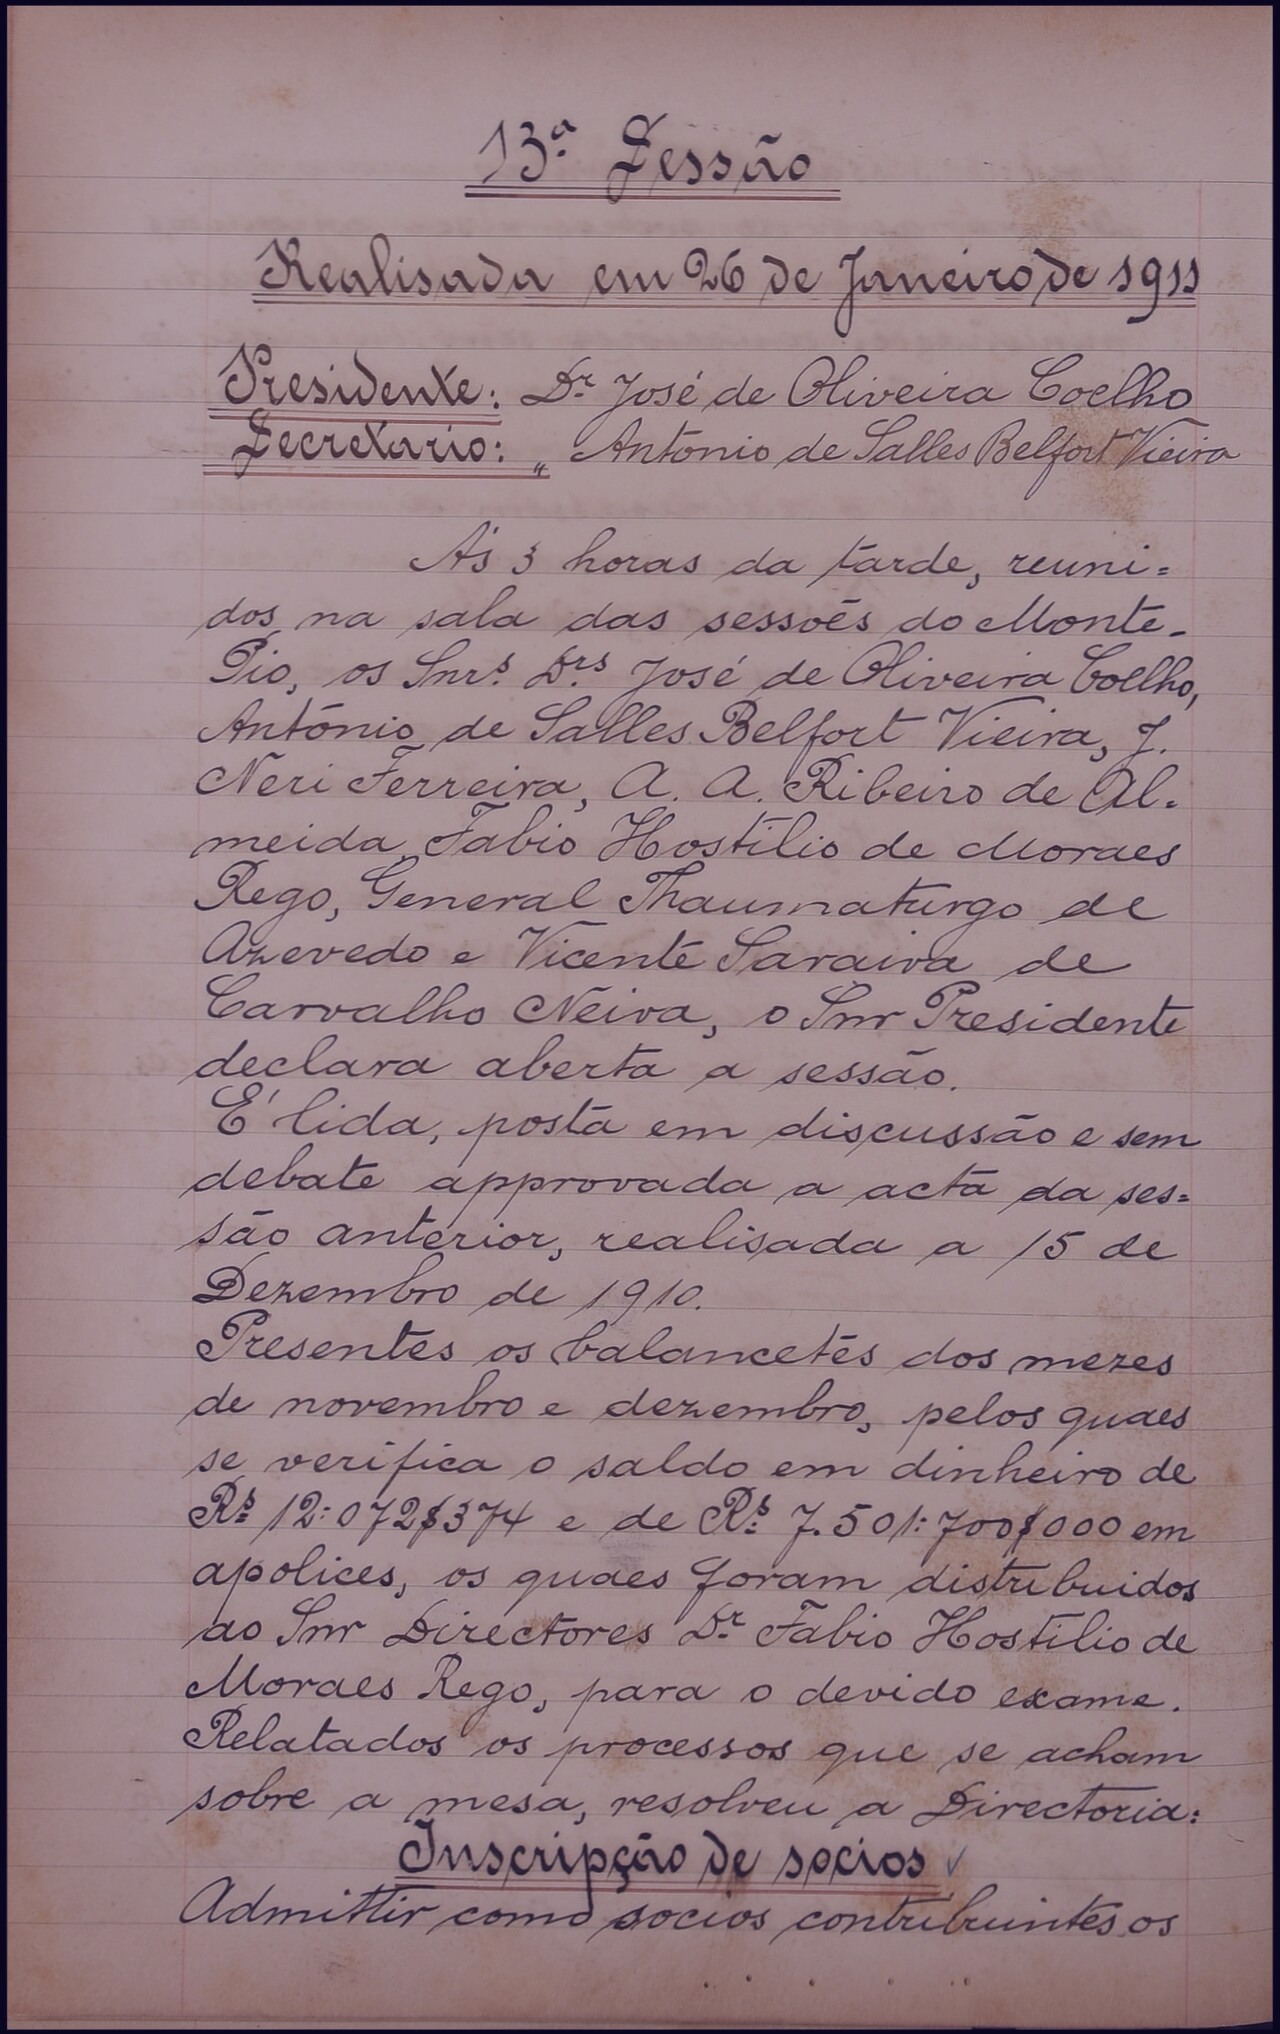 13ª Sessão
Realisada em 26 de Janeiro de 1911
Presidente: Dr. José de Oliveira Coelho
Secretario: „ Antonio de Salles Belfort Vieira
Ás 3 horas da tarde, reuni=
dos na sala das sessões do Monte-
Pio, os Snrs. Drs. José de Oliveira Coelho,
António de Salles Belfort Vieira, J.
Neri Ferreira, A. A. Ribeiro de Al-
meida, Fabio Hostilio de Moraes
Rego, General Thaumaturgo de
Azevedo e Vicente Saraiva de
Carvalho Neiva, o Snr Presidente
declara aberta a sessão.
É lida, posta em discussão e sem
debate approvada a acta da ses=
são anterior, realisada a 15 de
Dezembro de 1910.
Presentes os balancetes dos mezes
de novembro e dezembro, pelos quaes
se verifica o saldo em dinheiro de
Rs. 12:072$374 e de Rs. 7.501:700$000 em
apolices, os quaes foram distribuidos
ao Snr Directores Dr. Fabio Hostilio de
Moraes Rego, para o devido exame.
Relatados os processos que se acham
sobre a mesa, resolveu a Directoria:
Inscripção de socios ✓
Admittir como socios contribuintes os